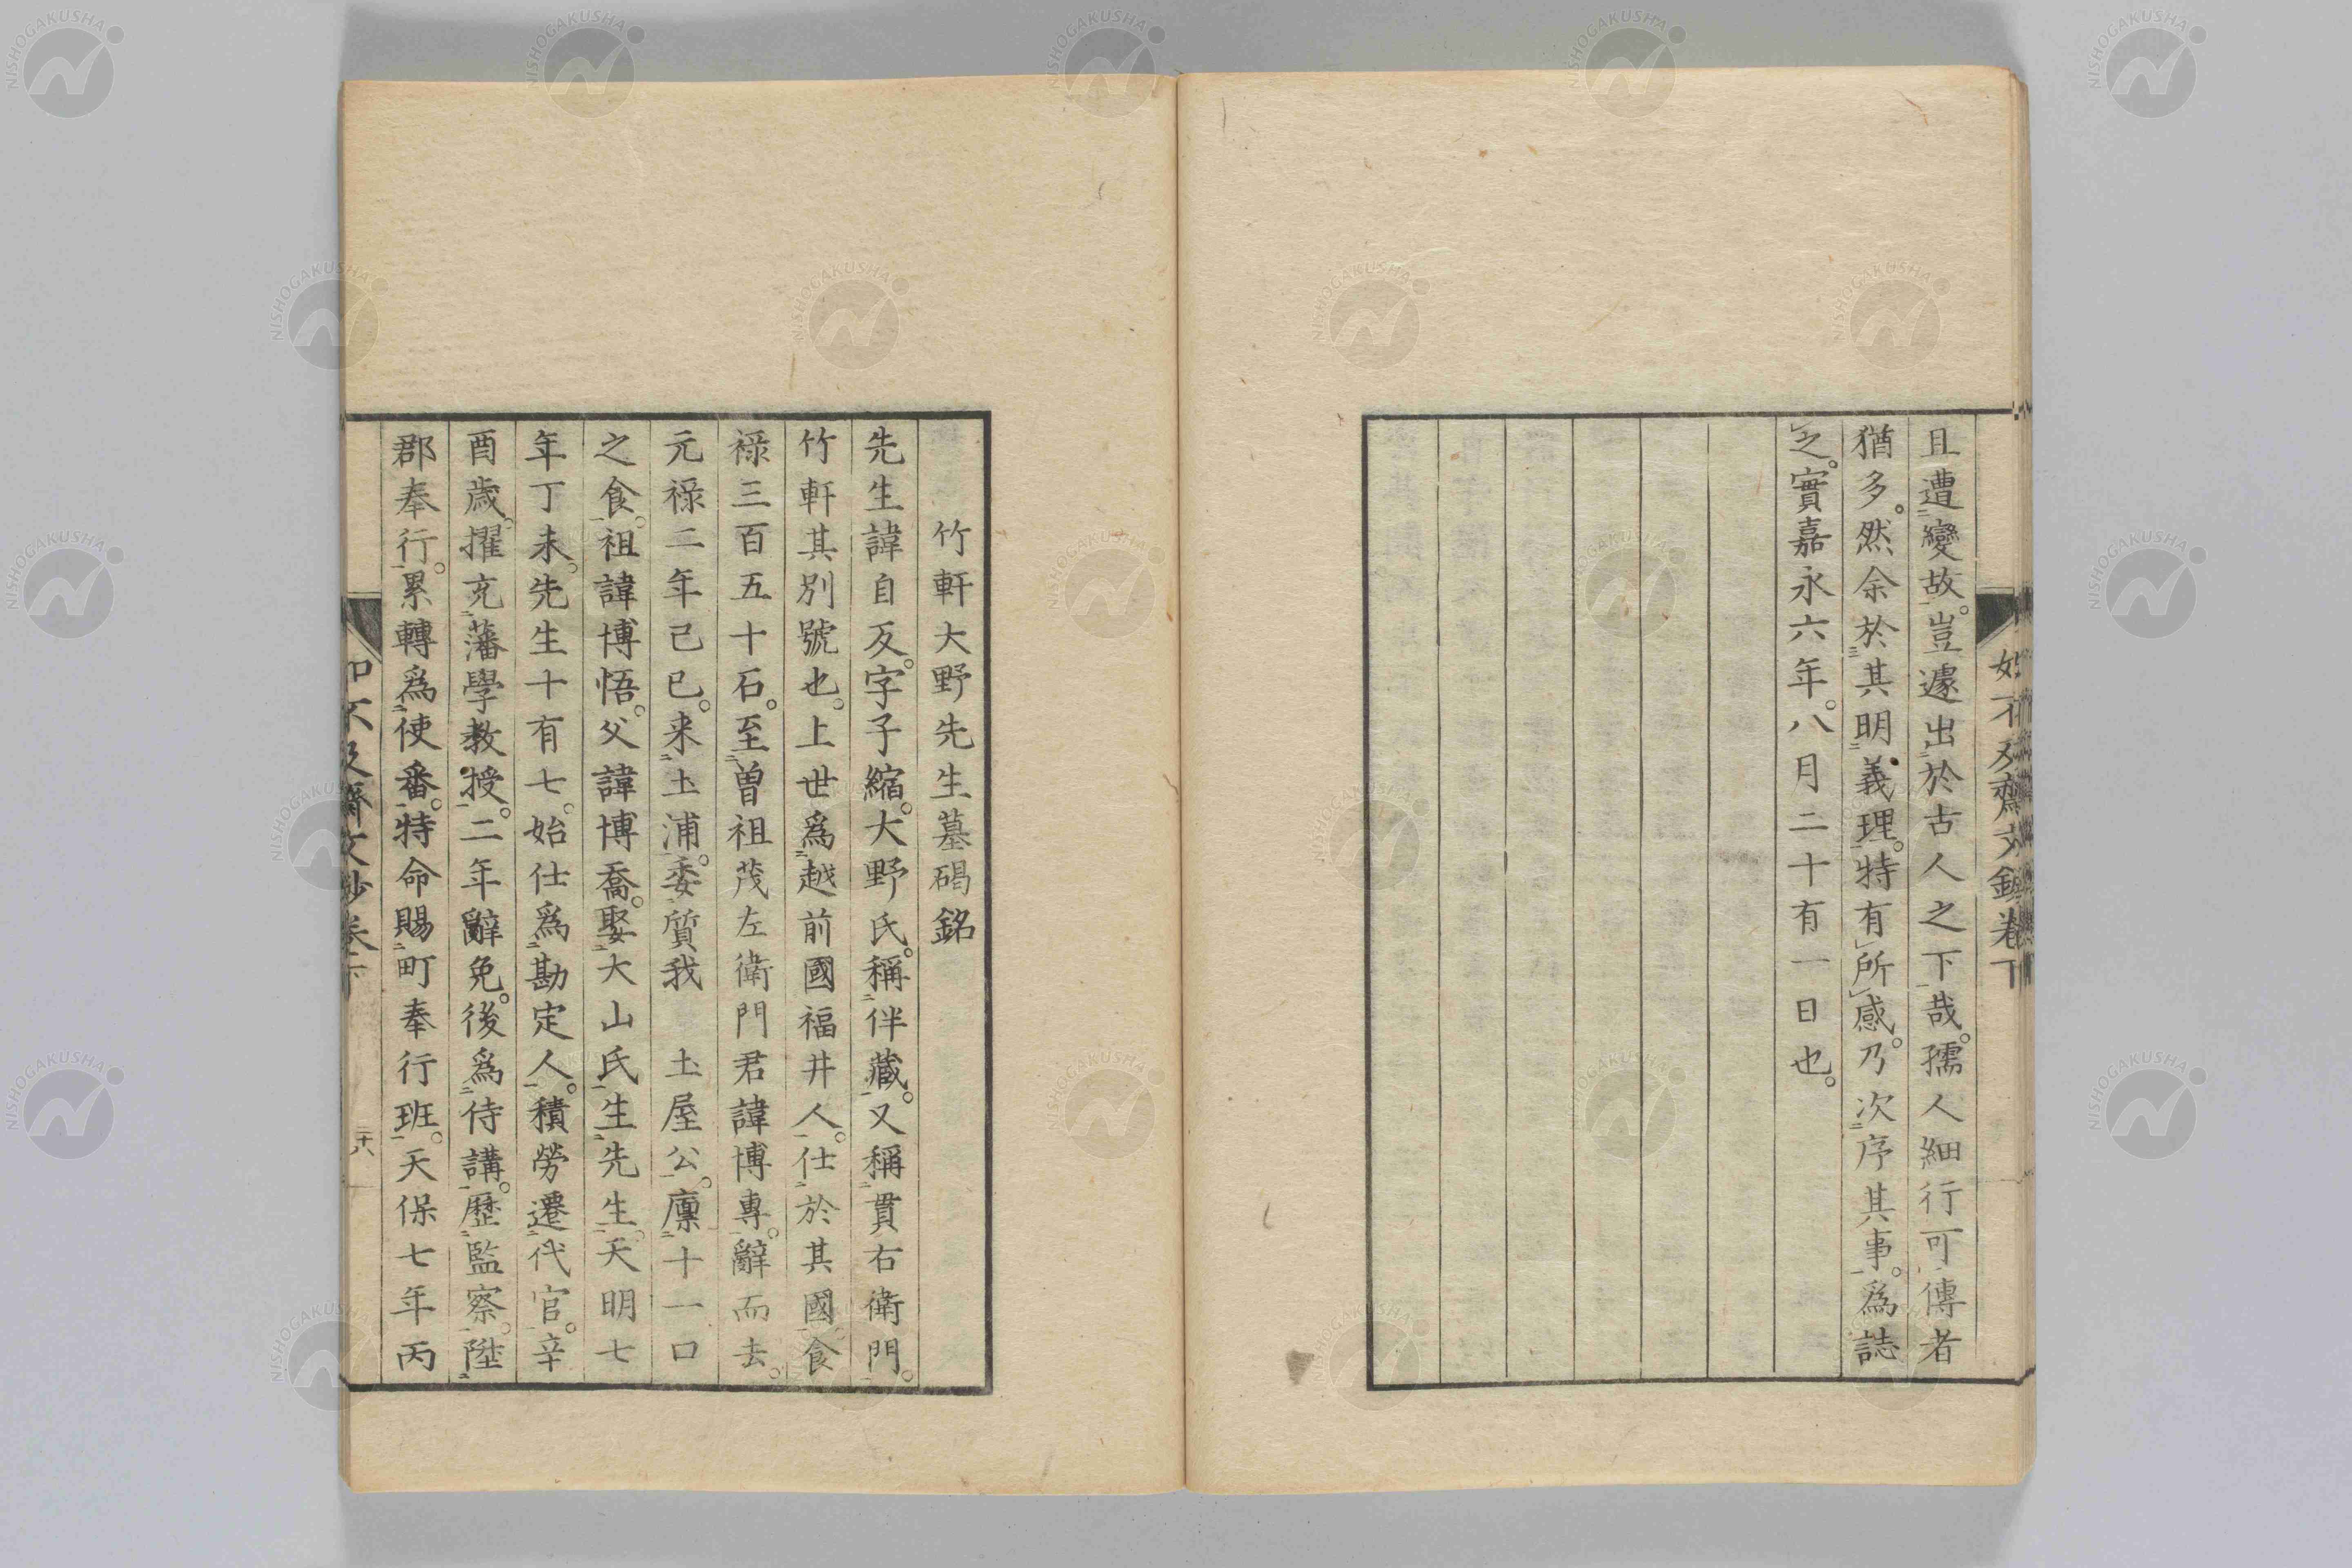 且遭變故。豈遽出於古人之下哉。孺人細行可傳者
猶多。然余於其明義理。特有所感。乃次序其事。爲誌
之。實嘉永六年。八月二十有一日也。
竹軒大野先生墓碣銘
先生諱自反。字子縮。大野氏。稱伴藏。又稱貫右衛門。
竹軒其別號也。上世爲越前國福井人。仕於其國食
祿三百五十石。至曾祖茂左衛門君諱博專。辭而去。
元祿二年己巳。来土浦。委質我　土屋公。廩十一口
之食。祖諱博悟。父諱博喬。娶大山氏生先生。天明七
年丁未。先生十有七。始仕爲勘定人。積勞遷代官。辛
酉歲。擢充藩學教授。二年辭免。後爲侍講。歷監察。陞
郡奉行。累轉爲使番。特命賜町奉行班。天保七年丙
如不及齋文鈔卷下
二十八
NISHOGAKUSHA